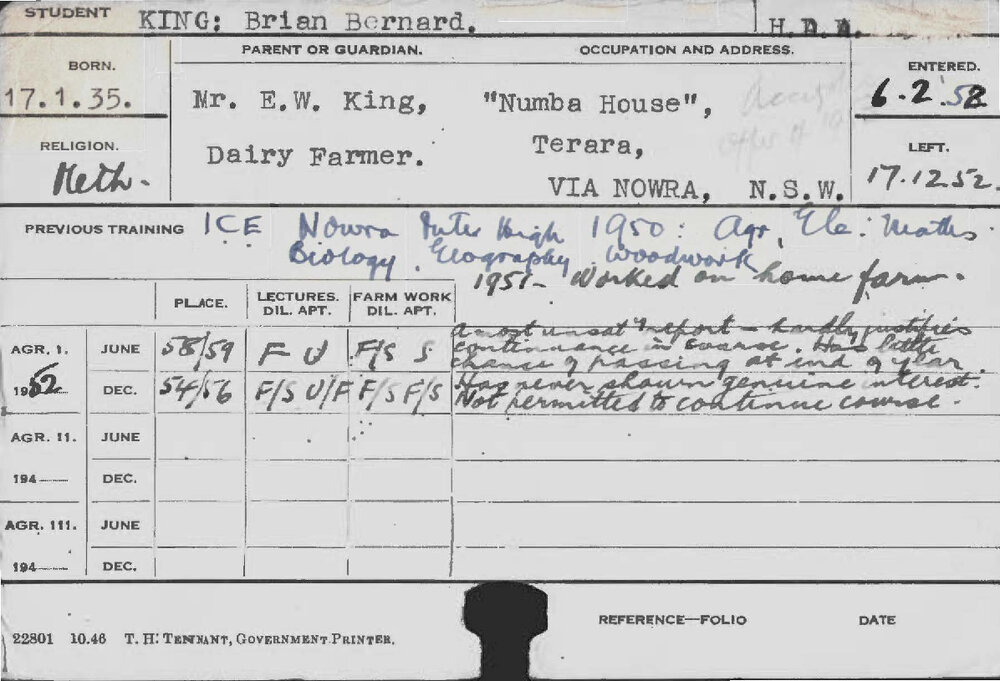 STUDENT KING: Brian Bernard. H.D.A.
PARENT OR GUARDIAN. OCCUPATION AND ADDRESS.
BORN. ENTERED.
17.1.35. Mr. E.W. King, "Numba House", 6.2.52
RELIGION. Dairy Farmer. Terara, LEFT.
Meth. VIA NOWRA, N.S.W. 17.12.52.
PREVIOUS TRAINING ICE Nowra Inter High 1950: Agr, Ele: Maths
Biology, Geography Woodwork
1951- Worked on home farm.
PLACE. LECTURES. DIL. APT. FARM WORK DIL. APT.
A most unsat report - hardly justifies
AGR. 1. JUNE 58/59 F U F/S S continuance in course. Has little
chance of passing at end of year.
1952 DEC. 54/56 F/S U/F F/S F/S Has never shown genuine interest.
Not permitted to continue course.
AGR. 11. JUNE
194 DEC.
AGR. 111. JUNE
194 DEC.
REFERENCE—FOLIO DATE
22801 10.46 T. H. TENNANT, GOVERNMENT PRINTER.